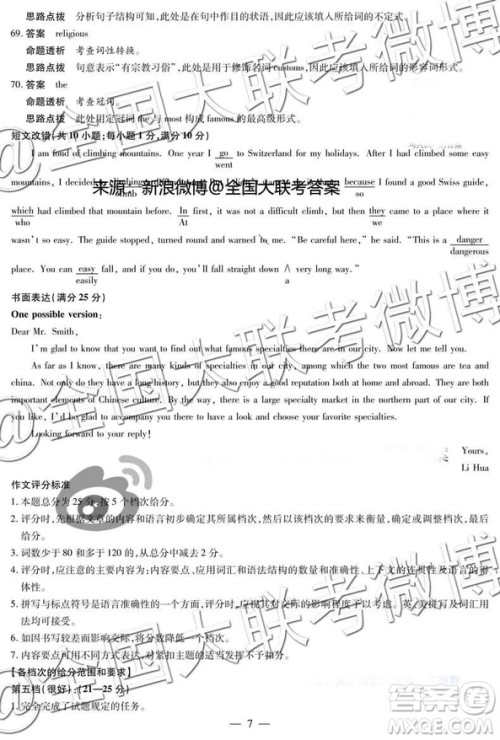 思路点拨 分析句子结构可知,此处是在句中作目的状语,因此应该填入所给词的不定式。
69. 答案 religious
命题透析 考查词性转换。
思路点拨 句意表示“有宗教习俗”,此处是用于修饰名词 customs,因此应该填入所给词的形容词形式。
70. 答案 the
命题透析 考查冠词。
思路点拨 此处用定冠词 the 与 most 构成 famous 的最高级形式。
短文改错(共 10 小题;每小题 1 分,满分 10 分)
I am fond of climbing mountains. One year I go to Switzerland for my holidays. After I had climbed some easy
went
mountains, I decided climbing because I had persuaded a good Swiss guide,
climb so
which had climbed that mountain before. In first, it was not a difficult climb, but then they came to a place where it
who At we
wasn't so easy. The guide stopped, turned round and warned me. "Be careful here," he said. "This is a danger
dangerous
place. You can easy fall, and if you do, you'll fall straight down ∧ very long way."
easily a
书面表达(满分 25 分)
One possible version:
Dear Mr. Smith,
I'm glad to know that you want to find out what famous specialties there are in our city. Now let me tell you.
As far as I know, there are many kinds of specialties in our city, among which the two most famous are tea and
china. Not only do they have a long history, but they also enjoy a good reputation both at home and abroad. They are both
important elements of Chinese culture. Besides, there is a large specialty market in the northern part of our city. If
possible, I would be glad to accompany you there to have a look and choose your favorite specialties.
Looking forward to your reply!
Yours,
Li Hua
作文评分标准
1. 本题总分为 25 分,按 5 个档次给分。
2. 评分时,先根据文章的内容和语言初步确定其所属档次,然后以该档次的要求来衡量,确定或调整档次,最后
给分。
3. 词数少于 80 和多于 120 的,从总分中减去 2 分。
4. 评分时,应注意的主要内容为:内容要点、应用词汇和语法结构的数量和准确性、上下文的连贯性及语言的得
体性。
5. 拼写与标点符号是语言准确性的一个方面,评分时,应视其对交际的影响程度予以考虑。英、美拼写及词汇用
法均可接受。
6. 如因书写较差而影响交际,将分数降低一个档次。
7. 内容要点可用不同方式表达,对紧扣主题的适当发挥不予扣分。
【各档次的给分范围和要求】
第五档(很好):(21—25 分)
1. 完全完成了试题规定的任务。
— 7 —
来源:新浪微博@全国大联考答案
@全国大联考微博
答案圈
MXQE.COM